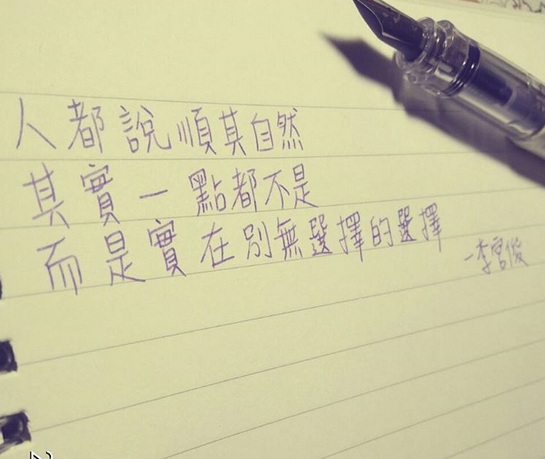 人都說順其自然
其實一點都不是
而是實在別無選擇的選擇
-李宮俊